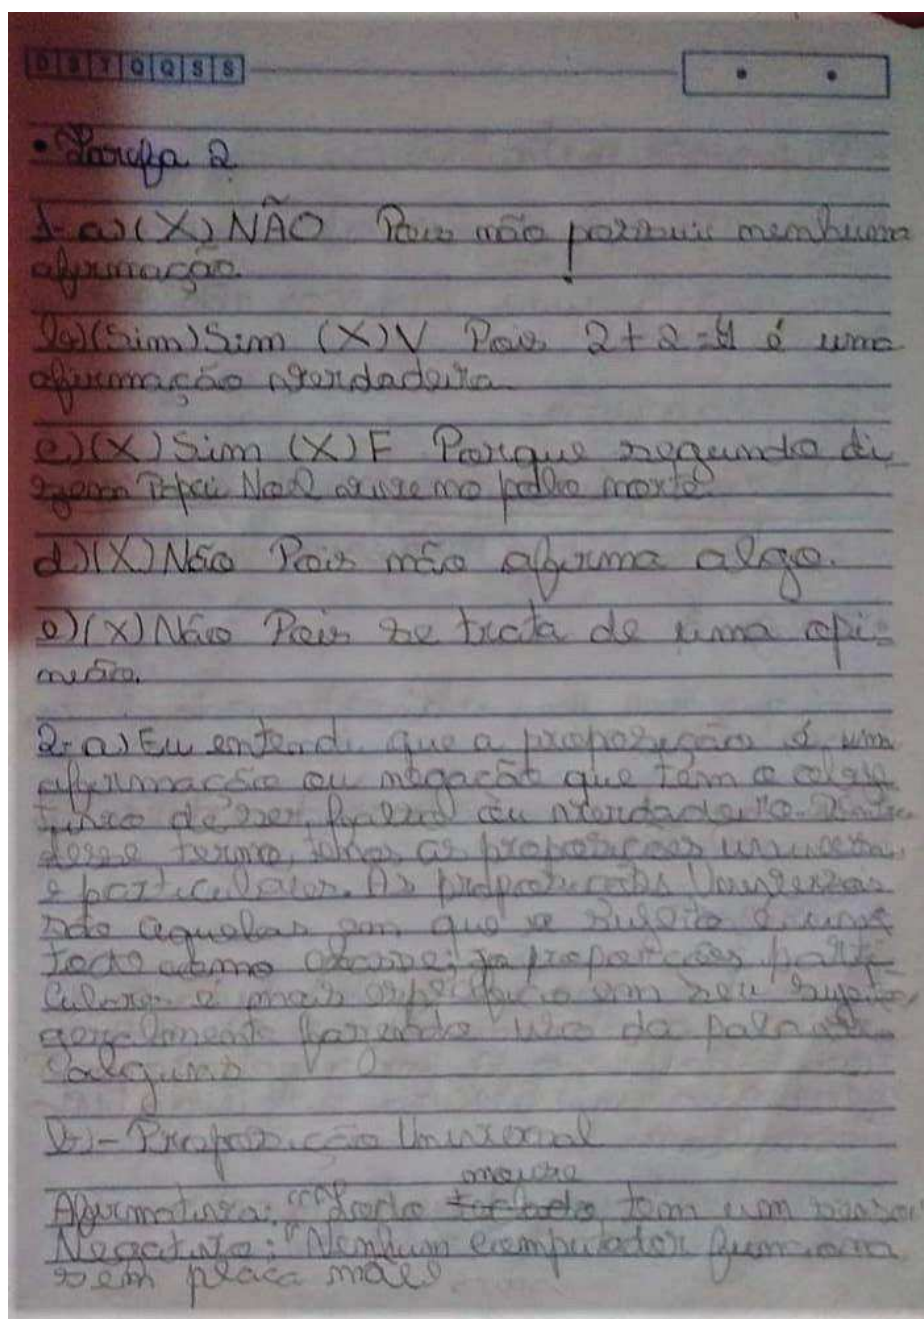 D S T Q Q S S
• Tarefa 2
1- a) (X) NÃO Pois não possui nenhuma
afirmação.
b) (Sim) Sim (X) V Pois 2+2=4 é uma
afirmação verdadeira
c) (X) Sim (X) F Porque segundo di
zem Papai Noel vive no polo norte.
d) (X) Não Pois não afirma algo.
e) (X) Não Pois se trata de uma opi-
nião.
2- a) Eu entendi que a proposição é um
afirmação ou negação que tem o
de ser falso ou verdadeiro. Dentro
desse termo, temos as proposições
e particulares. As proposições
são aquelas em que o sujeito é um
todo como já proposições parti
culares é mais específico em seu sujeito,
geralmente fazendo uso da palavra
alguns
b) - Proposição Universal
mouse
Afirmativa: "Todo tem um
Negativa: "Nenhum computador funciona
sem placa mãe"